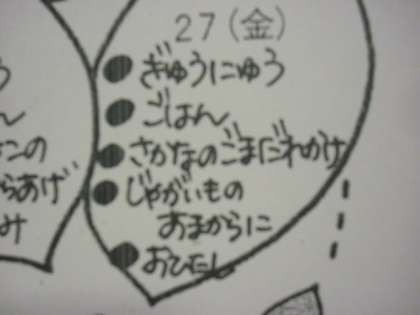 27(金)
ぎゅうにゅう
ごはん
さかなのごまだれかけ
じゃがいもの
あまからに
おひたし